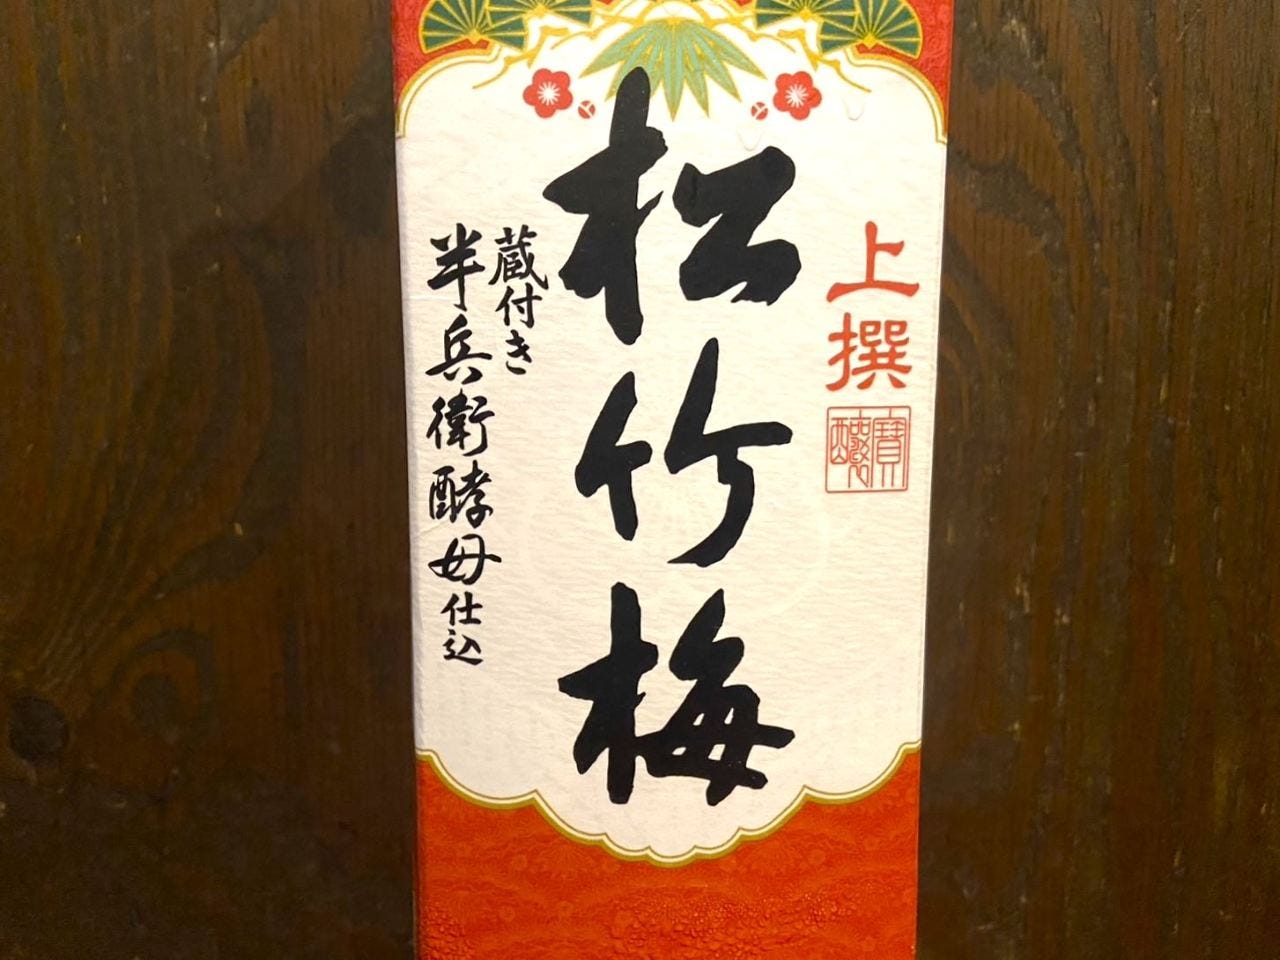 上撰
寶醸
松竹梅
蔵付き
半兵衛酵母仕込